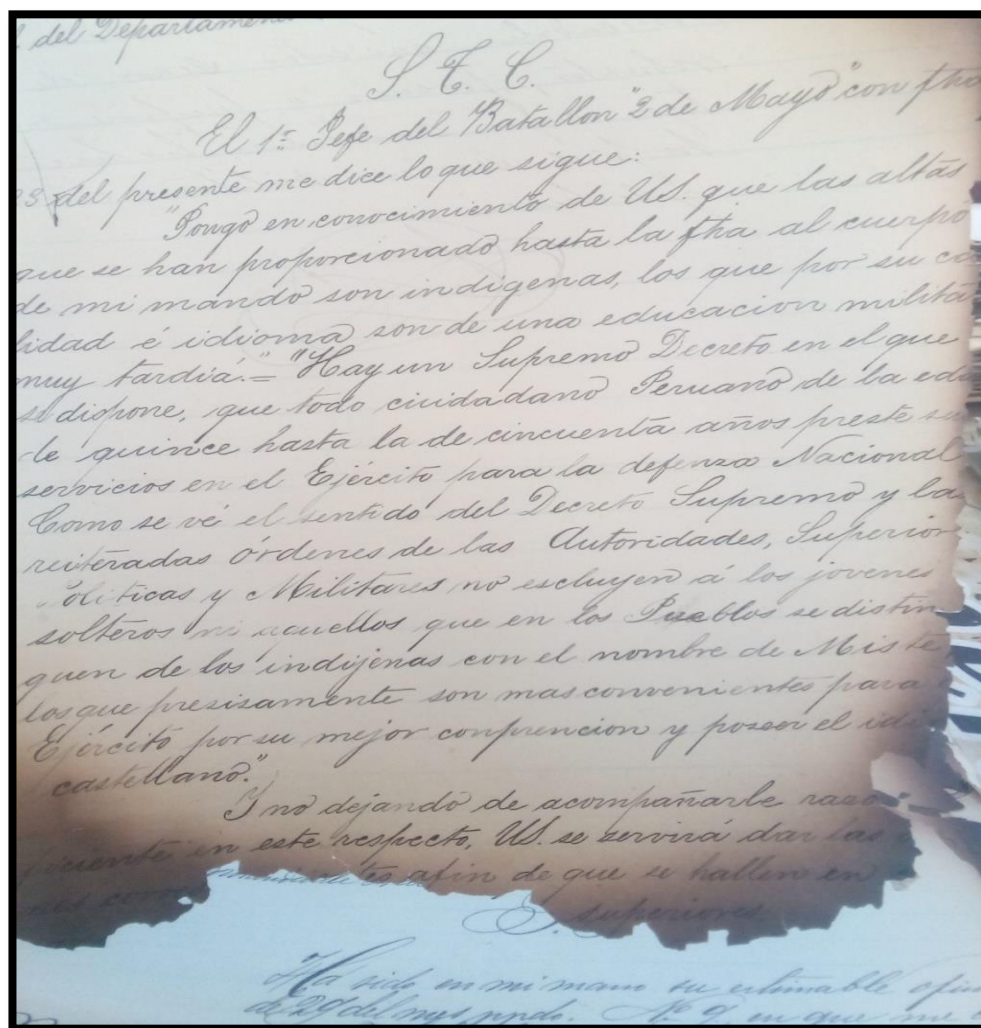 del Departamen
S. T. C.
El 1º Jefe del Batallon "2 de Mayo" con fha
23 del presente me dice lo que sigue:
"Pongo en conocimiento de US. que las altas
que se han proporcionado hasta la fha al cuerpo
de mi mando son indigenas, los que por su ca
lidad é idioma son de una educacion milita
muy tardia."= "Hay un Supremo Decreto en el que
se dispone, que todo ciudadano Peruano de la eda
de quince hasta la de cincuenta años preste su
servicios en el Ejército para la defenza Nacional
Como se vé el sentido del Decreto Supremo y las
reiteradas órdenes de las Autoridades, Superior
Politicas y Militares no escluyen á los jovenes
solteros ni aquellos que en los Pueblos se distin
guen de los indijenas con el nombre de Miste
los que presisamente son mas convenientes para
Ejército por su mejor conprencion y poseer el idi
castellano."
Y no dejando de acompañarle razo
en este respecto, US. se servirá dar las
tes afin de que se hallen en
superiores
Ha sido en mi mano su estimable ofi
de 29 del mes ppdo. Nº 9, en que me